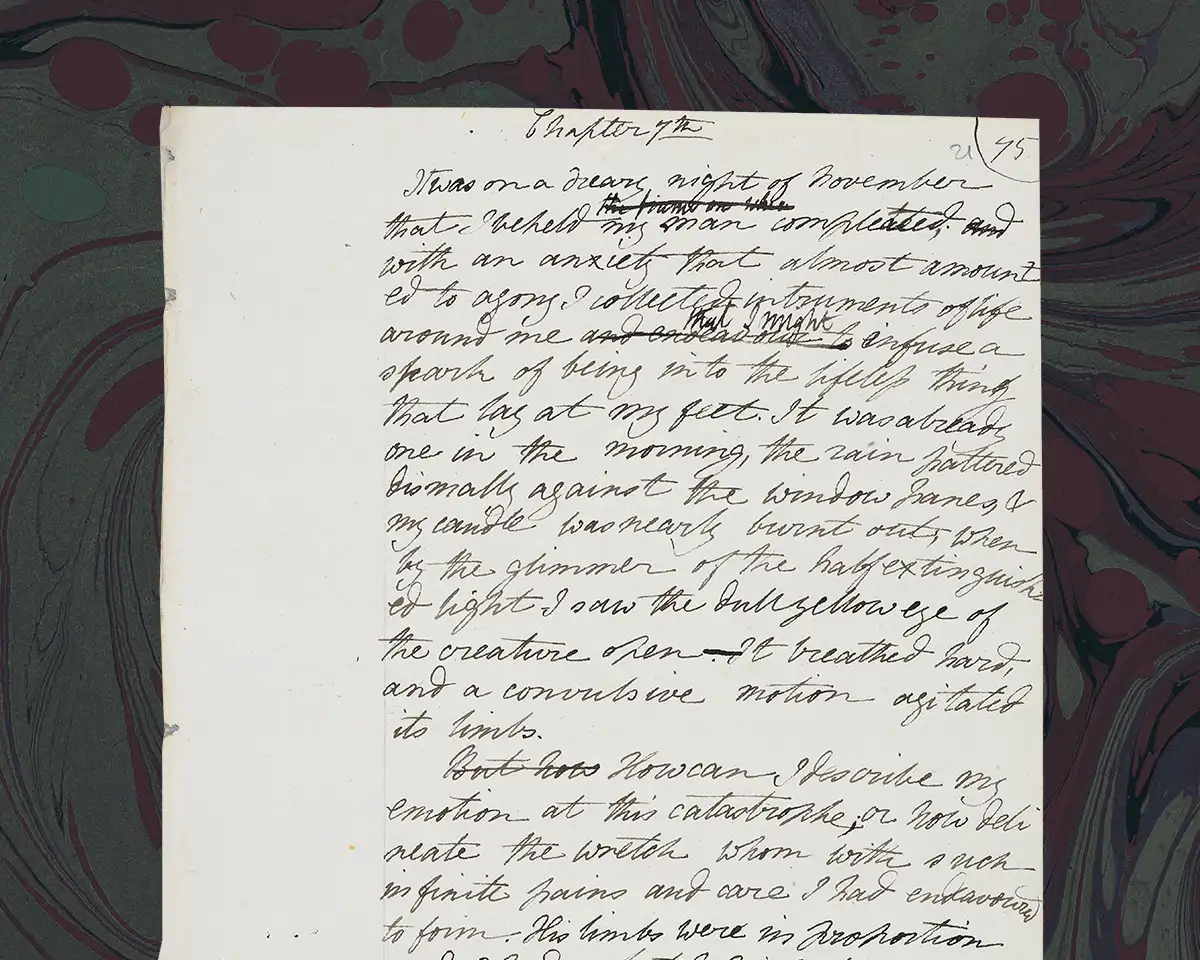 Chapter 7th
21 75
It was on a dreary night of November
that I beheld my man compleated; and
with an anxiety that almost amount
ed to agony I collected instruments of life
around me and endeavour to that I might infuse a
spark of being into the lifeless thing
that lay at my feet. It was already
one in the morning, the rain pattered
dismally against the window panes, &
my candle was nearly burnt out, when
by the glimmer of the half extinguish
ed light I saw the dull yellow eye of
the creature open. It breathed hard,
and a convulsive motion agitated
its limbs.
But how How can I describe my
emotion at this catastrophe; or how deli
neate the wretch whom with such
infinite pains and care I had endeavoured
to form. His limbs were in proportion